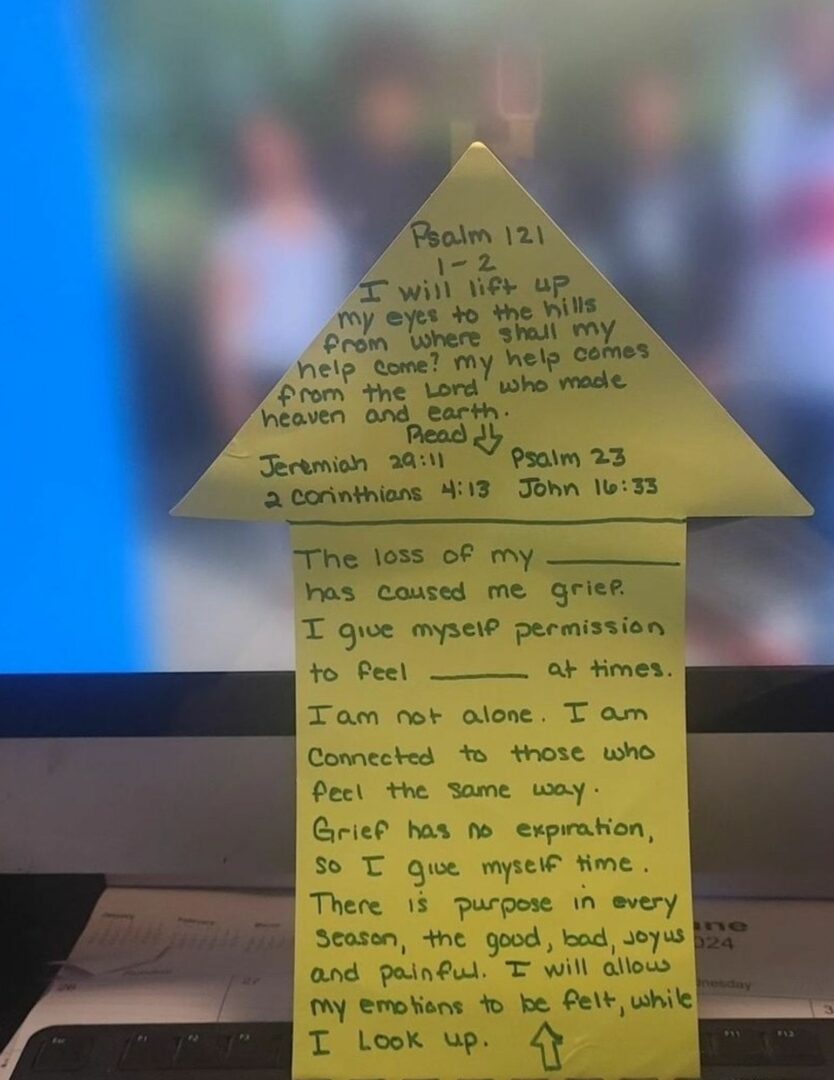 Psalm 121
1-2
I will lift up
my eyes to the hills
from where shall my
help come? my help comes
from the Lord who made
heaven and earth.
Read ⇩
Jeremiah 29:11 Psalm 23
2 Corinthians 4:13 John 16:33
The loss of my ________
has caused me grief.
I give myself permission
to feel ______ at times.
I am not alone. I am
Connected to those who
feel the same way.
Grief has no expiration,
so I give myself time.
There is purpose in every
Season, the good, bad, joyus
and painful. I will allow
my emotions to be felt, while
I Look up. ⇧
January February
26 27
Esc F1 F2 F3 F11 F12